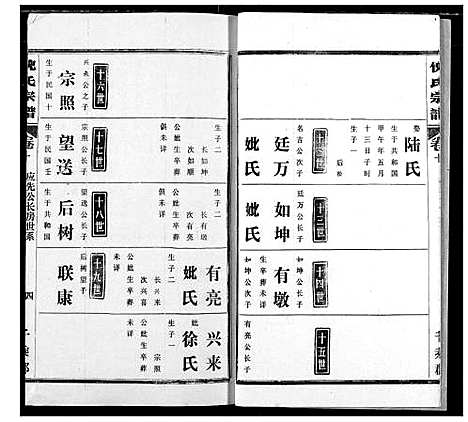 倪氏宗譜
卷十
娶
陆氏
生于共和国
甲午年五月
十三日子时
后裕
名吉公次子
廷万
妣氏
生子一
十三世
廷万公长子
如坤
妣氏
生子二
十四世
如坤公次子
公妣生卒葬
未详
有墩
十五世
有亮公长子
生子二
长如坤
次如日
公妣生卒葬
俱未详
生子二
长有墩
次有亮
公妣生卒葬
俱未详
有亮
妣氏
生子二
长兴来
次兴喜
公妣生卒葬
未详
兴来
妣
徐氏
生子一
宗照
公妣生卒葬
未详
十六世
兴来公之子
宗照
生于民国十
十七世
宗照公长子
望送
生于民国
十八世
望送公长子
后树
生于共和国
十九世
后树望子
联康
倪氏宗譜
卷十
应先公长房世系
四
千乘郡